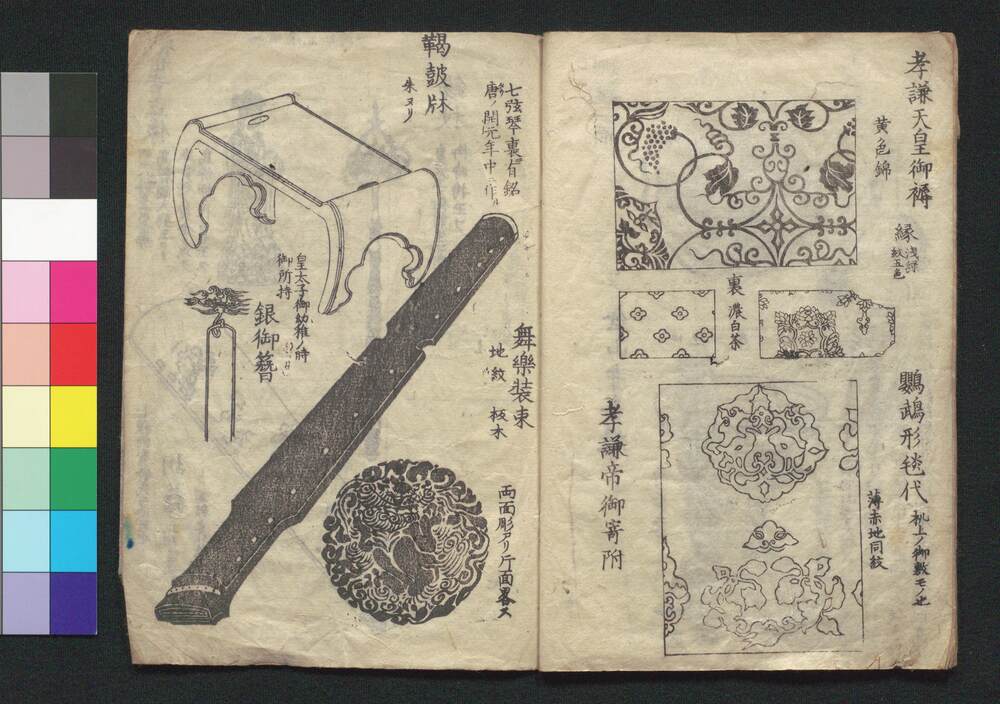 孝謙天皇御褥
黄ノ色錦
縁
浅緑
紋五色
裏
濃白茶
鸚鵡形毯代
机上ノ御敷モノ也
薄赤地同紋
孝謙帝御寄附
七弦琴裏有銘
唐ノ開元年中ニ作ル
鞨皷牀
朱ヌリ
舞樂装束
地紋
板木
両面彫アリ片面畧ス
皇太子御幼稚ノ時
御所持
銀御簪